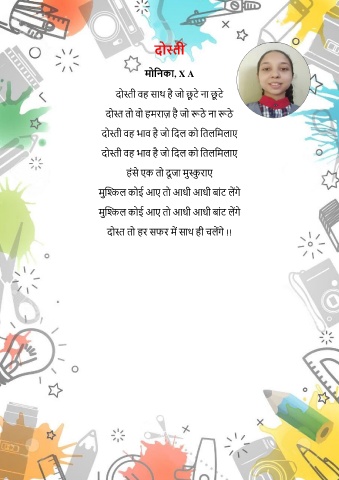 दोस्ती
मोनिका, X A
दोस्ती वह साथ है जो छूटे ना छूटे
दोस्त तो वो हमराज़ है जो रूठे ना रूठे
दोस्ती वह भाव है जो दिल को तिलमिलाए
दोस्ती वह भाव है जो दिल को तिलमिलाए
हंसे एक तो दूजा मुस्कुराए
मुश्किल कोई आए तो आधी आधी बांट लेंगे
मुश्किल कोई आए तो आधी आधी बांट लेंगे
दोस्त तो हर सफर में साथ ही चलेंगे !!